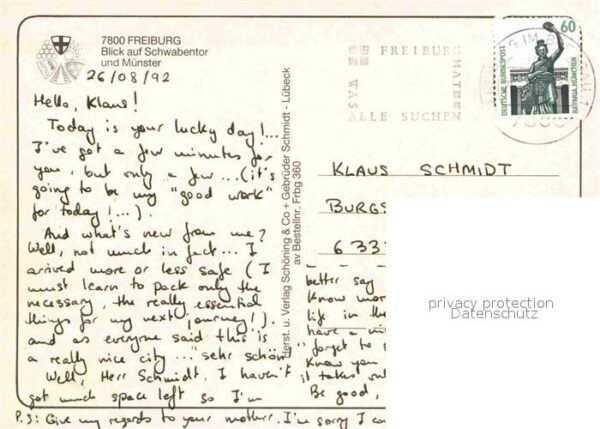 7800 FREIBURG
Blick auf Schwabentor
und Münster
26/08/92
Hello, Klaus!
Today is your lucky day!...
I've got a few minutes for
you, but only a few...(it's
going to be my "good work"
for today!...).
And what's new from me?
Well, not much in fact... I
arrived more or less safe (I
must learn to pack only the
necessary, the really essential
things for my next journey!).
and as everyone said this is
a really nice city... "sehr schön"
Well, Herr Schmidt, I haven't
got much space left so I'm
P.S: Give my regards to your mother. I'm sorry I
Herst. u. Verlag Schöning & Co + Gebrüder Schmidt - Lübeck
av Bestellnr. Frbg 360
FREIBURG
HAT
WAS
ALLE SUCHEN
60
DEUTSCHE BUNDESPOST
BAVARIA MÜNCHEN
KLAUS SCHMIDT
BURGS
633
better say
know mor
life in the
have a ni
forget to
know you
it takes
Be good,
privacy protection
Datenschutz